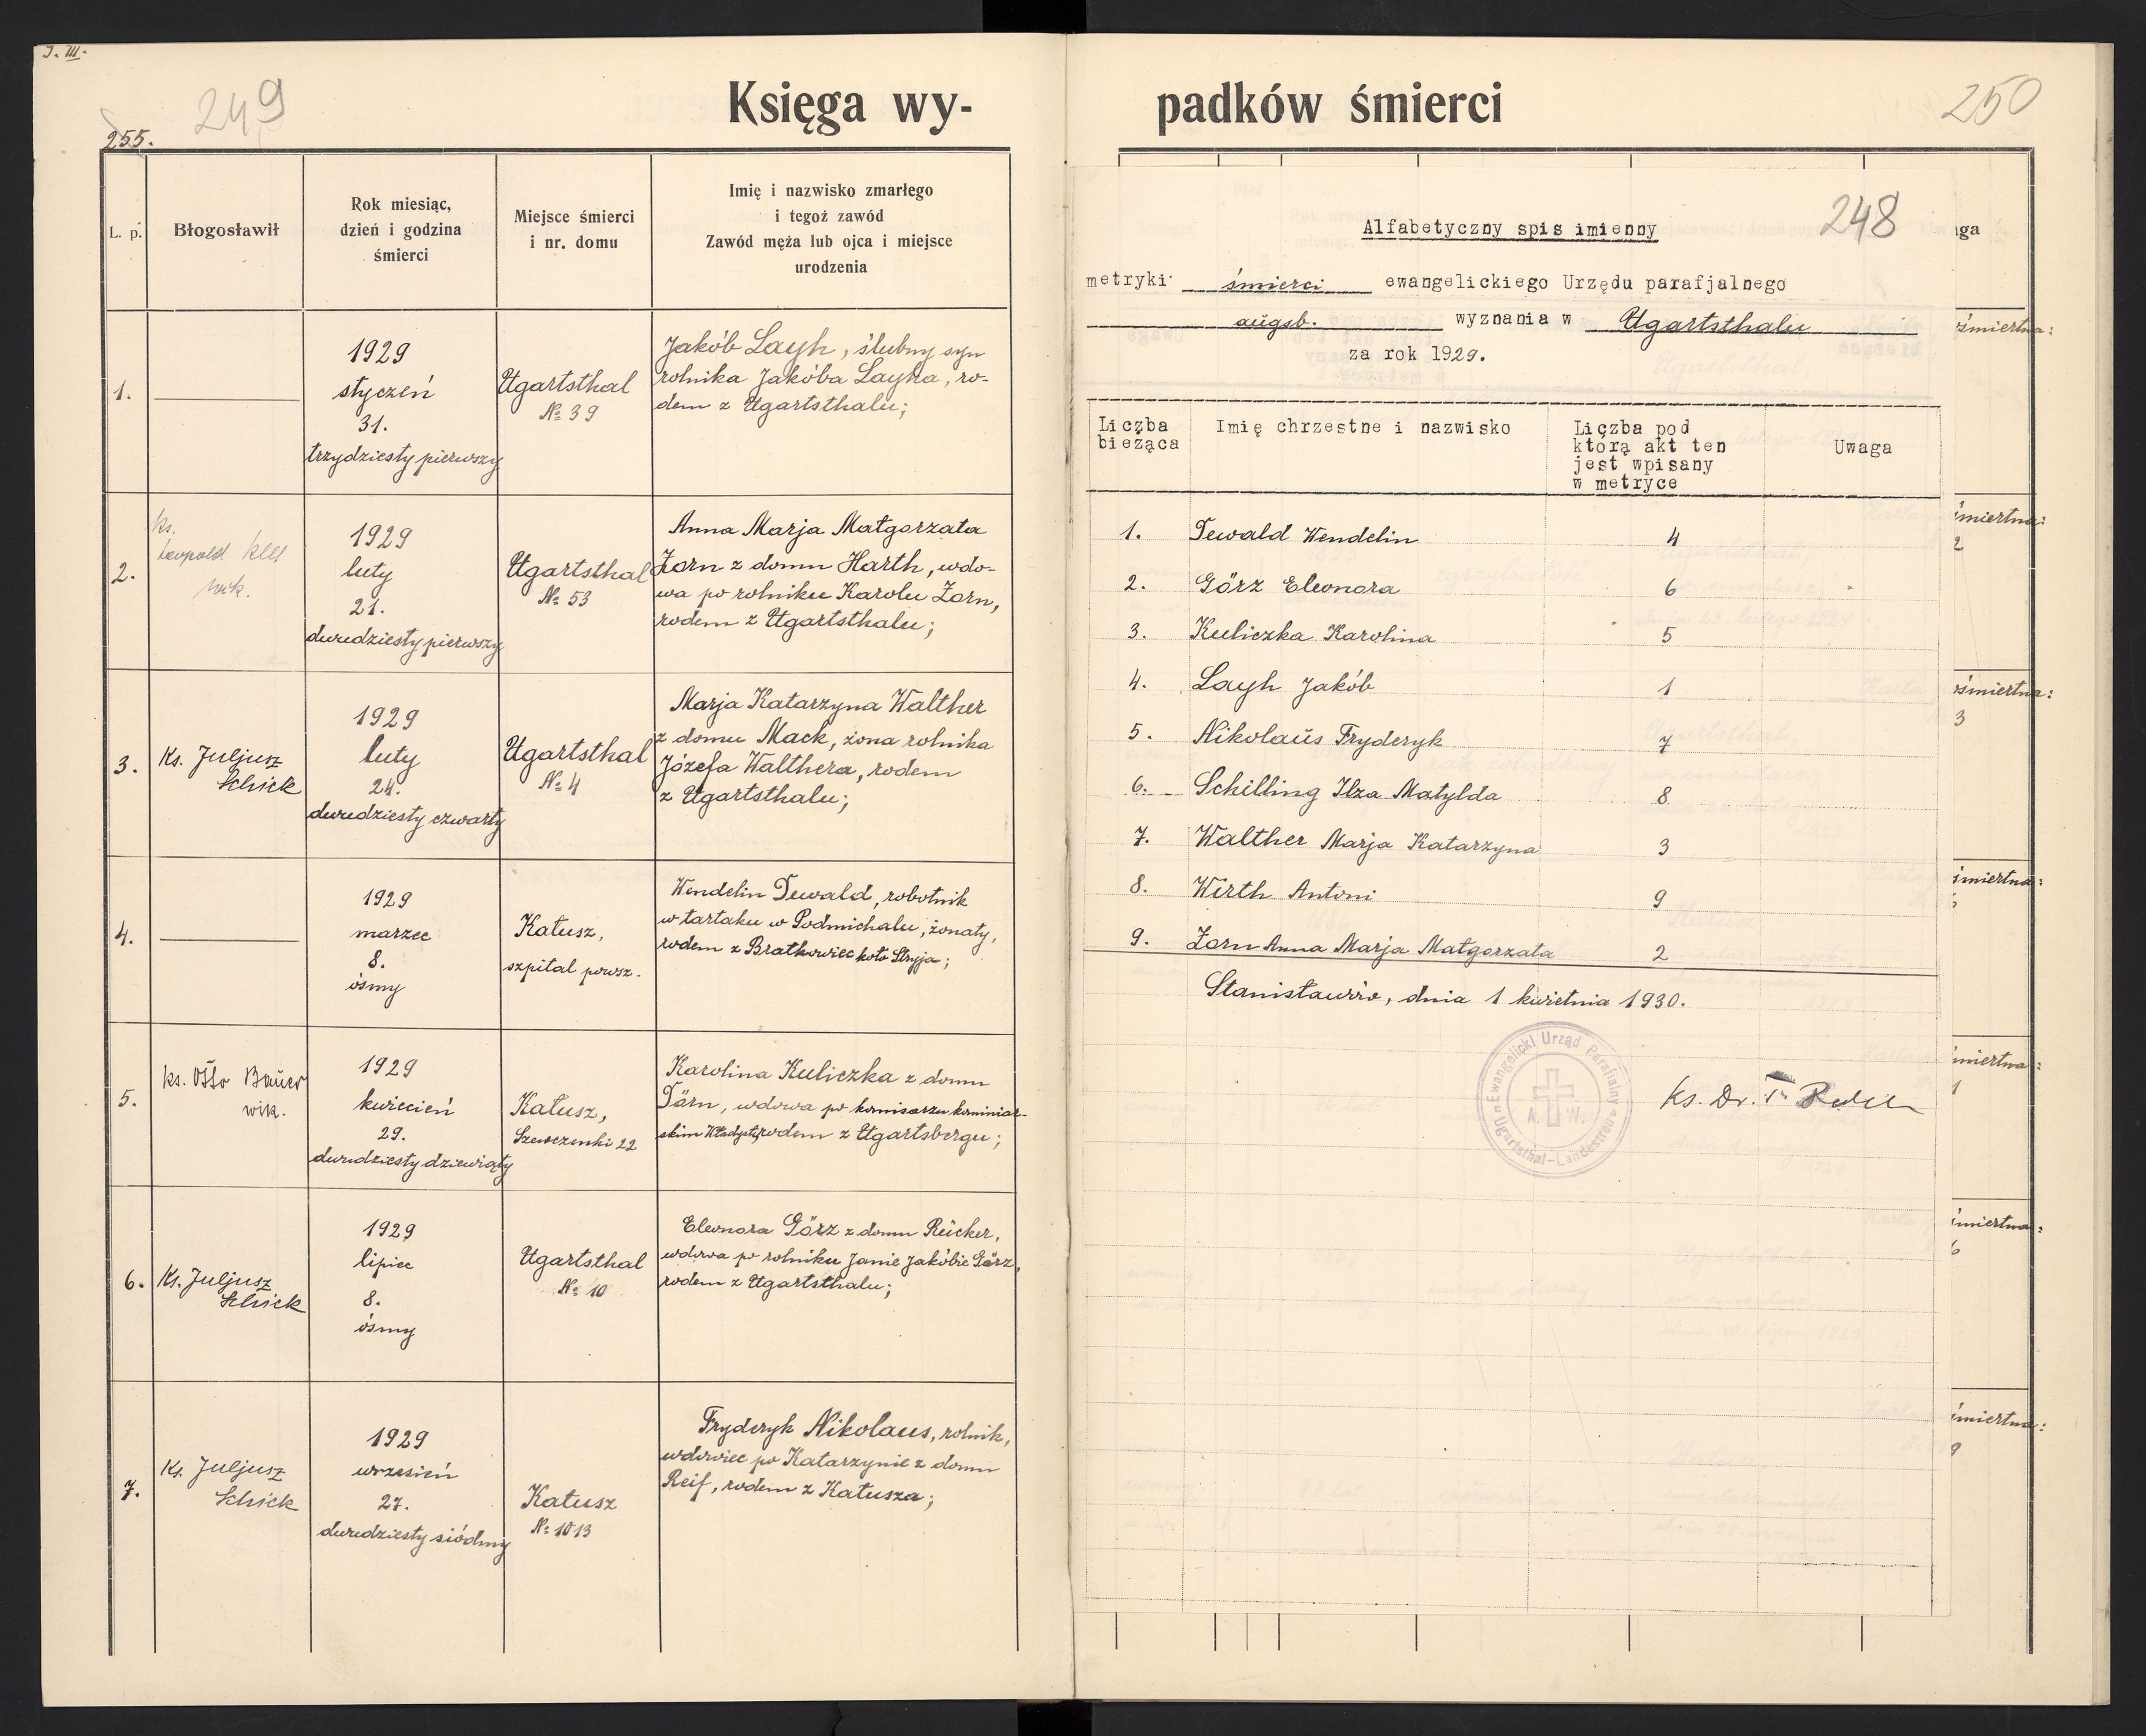 I. III.
249
255.
Księga wy-
L. p.
Błogosławił
Rok miesiąc,
dzień i godzina
śmierci
Miejsce śmierci
i nr. domu
Imię i nazwisko zmarłego
i tegoż zawód
Zawód męża lub ojca i miejsce
urodzenia
1.
1929
styczeń
31.
trzydziesty pierwszy
Ugartsthal
№ 39
Jakób Layh, ślubny syn
rolnika Jakóba Layha, ro-
dem z Ugartsthalu;
2.
ks.
Leopold
wik.
1929
luty
21.
dwudziesty pierwszy
Ugartsthal
№ 53
Anna Marja Małgorzata
Zorn z domu Harth, wdo-
wa po rolniku Karolu Zorn,
rodem z Ugartsthalu;
3.
Ks. Juljusz
Schick
1929
luty
24.
dwudziesty czwarty
Ugartsthal
№ 4
Marja Katarzyna Walther
z domu Mack, żona rolnika
Józefa Walthera, rodem
z Ugartsthalu;
4.
1929
marzec
8.
ósmy
Kałusz,
szpital powsz.
Wendelin Dewald, robotnik
w tartaku w Podmichalu, żonaty,
rodem z Bratkowiec koło Stryja;
5.
ks. Otto Bauer
wik.
1929
kwiecień
29.
dwudziesty dziewiąty
Kałusz,
Szewczenki 22
Karolina Kuliczka z domu
Dörn, wdowa po komisarzu kominiar-
skim rodem z Ugartsbergu;
6.
Ks. Juljusz
Schick
1929
lipiec
8.
ósmy
Ugartsthal
№ 10
Eleonora Görz z domu Rücker,
wdowa po rolniku Janie Jakóbie Görz,
rodem z Ugartsthalu;
7.
Ks. Juljusz
Schick
1929
wrzesień
27.
dwudziesty siódmy
Kałusz
№ 1013
Fryderyk Nikolaus, rolnik,
wdowiec po Katarzynie z domu
Reif, rodem z Kałusza;
padków śmierci
250
248
Alfabetyczny spis imienny
metryki śmierci ewangelickiego Urzędu parafjalnego
augsb. wyznania w Ugartsthalu
za rok 1929.
Liczba
bieżąca
Imię chrzestne i nazwisko
Liczba pod
którą akt ten
jest wpisany
w metryce
Uwaga
1. Dewald Wendelin 4
2. Görz Eleonora 6
3. Kuliczka Karolina 5
4. Layh Jakób 1
5. Nikolaus Fryderyk 7
6. Schilling Ilza Matylda 8
7. Walther Marja Katarzyna 3
8. Wirth Antoni 9
9. Zorn Anna Marja Małgorzata 2
Stanisławów, dnia 1 kwietnia 1930.
Ewangelicki Urząd Parafialny
A. W.
Ugartsthal-Landestreu
Ks. Dr.
aga
śmiertna:
miertna:
2
śmiertna:
3
śmiertna:
miertna:
śmiertna:
6
śmiertna:
9